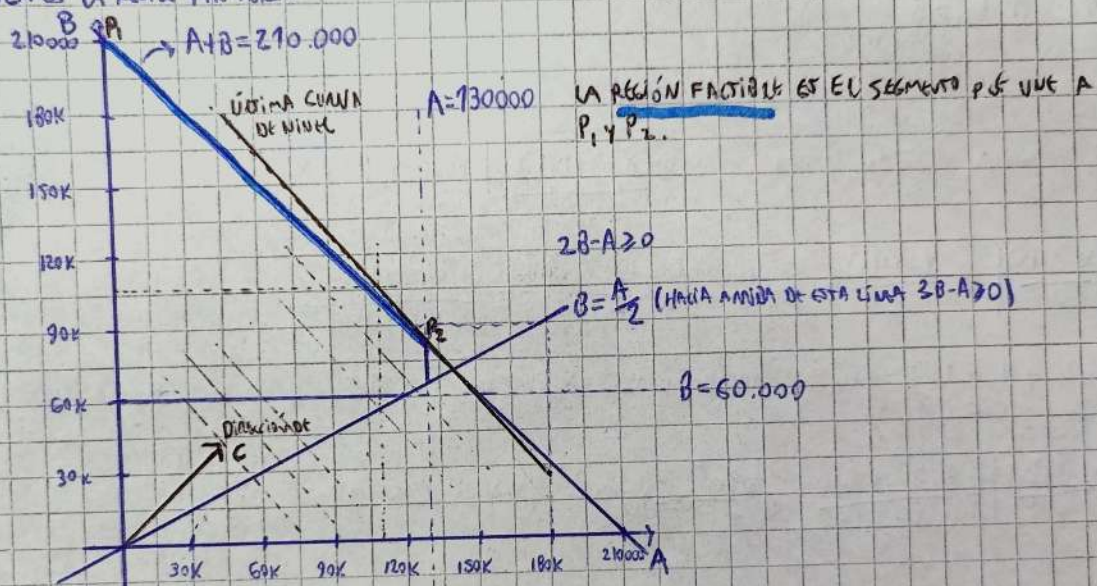 B P1
210000
A+B=210.000
ÚLTIMA CURVA
DE NIVEL
A=130000
LA REGIÓN FACTIBLE ES EL SEGMENTO QUE UNE A
P1 Y P2.
180K
150K
120K
2B-A≥0
B=A/2 (HACIA ARRIBA DE ESTA LÍNEA 3B-A≥0)
90K
P2
B=60.000
60K
DIRECCIÓN DE
C
30K
30K 60K 90K 120K 150K 180K 210000 A